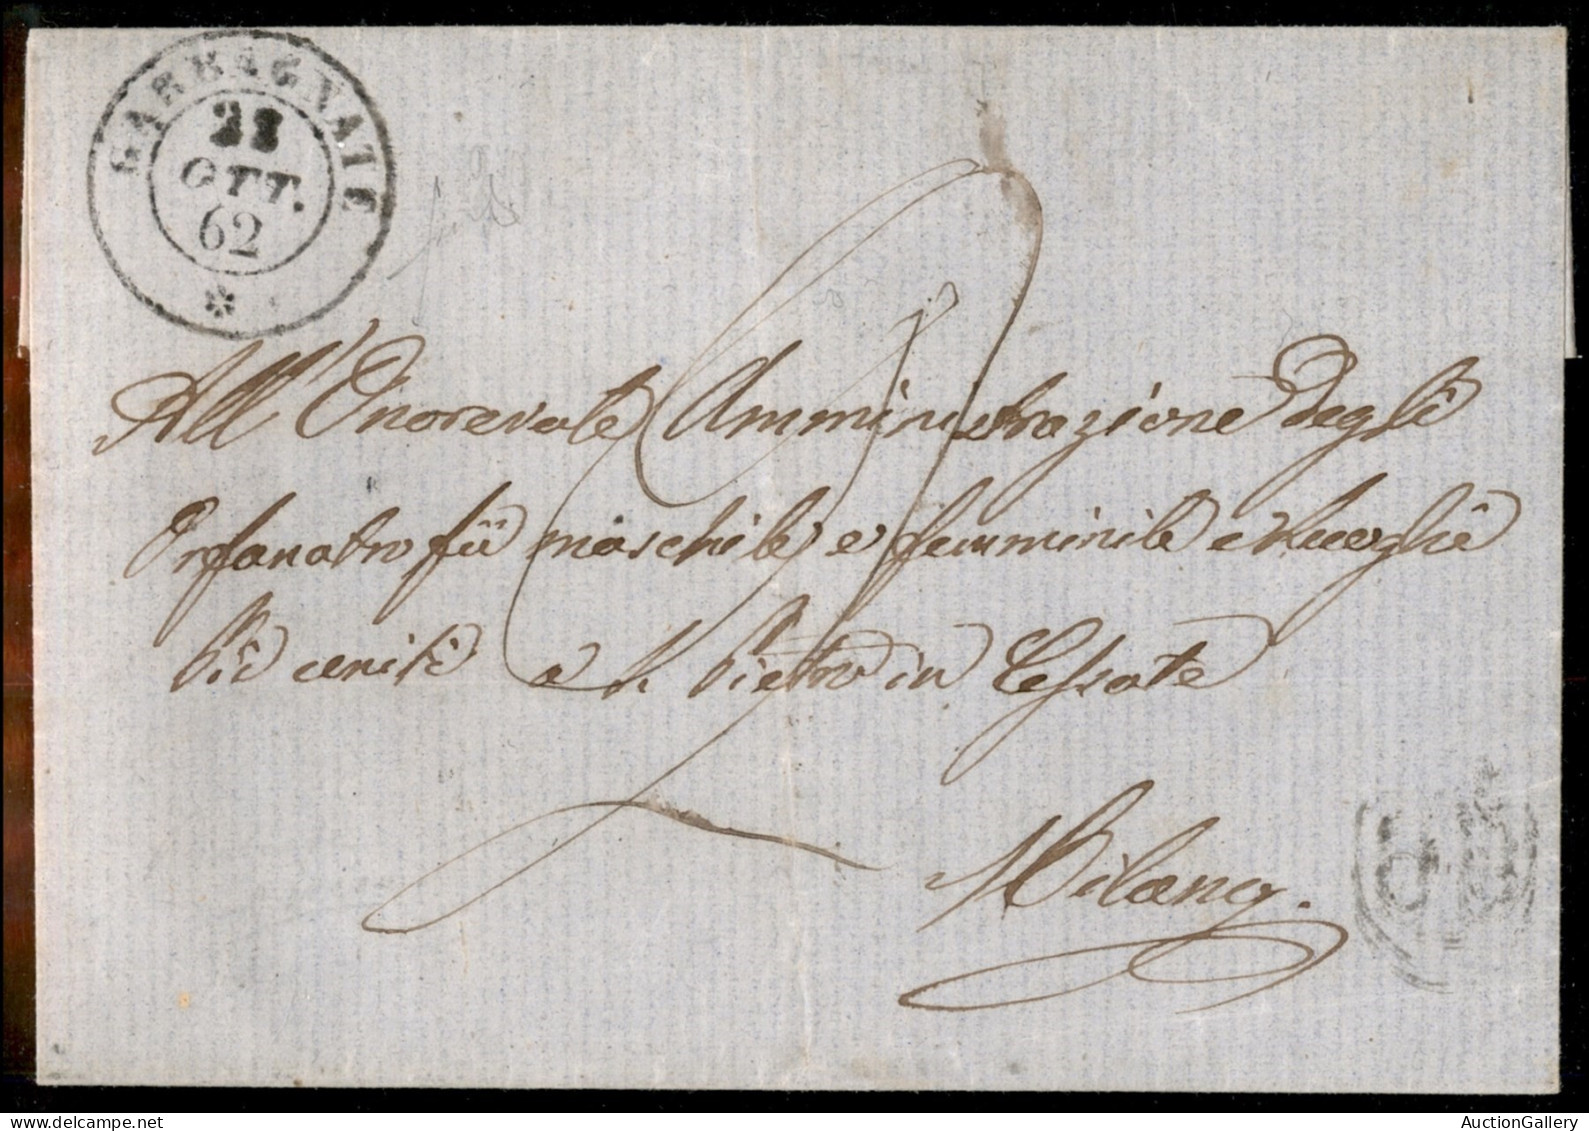 GARBAGNATE
28
OTT.
62
All' Onorevole Amministrazione degli
Orfanotrofii maschile e femminile e Luoghi
Pii uniti a S. Pietro in Gessate
Milano.
AuctionGallery